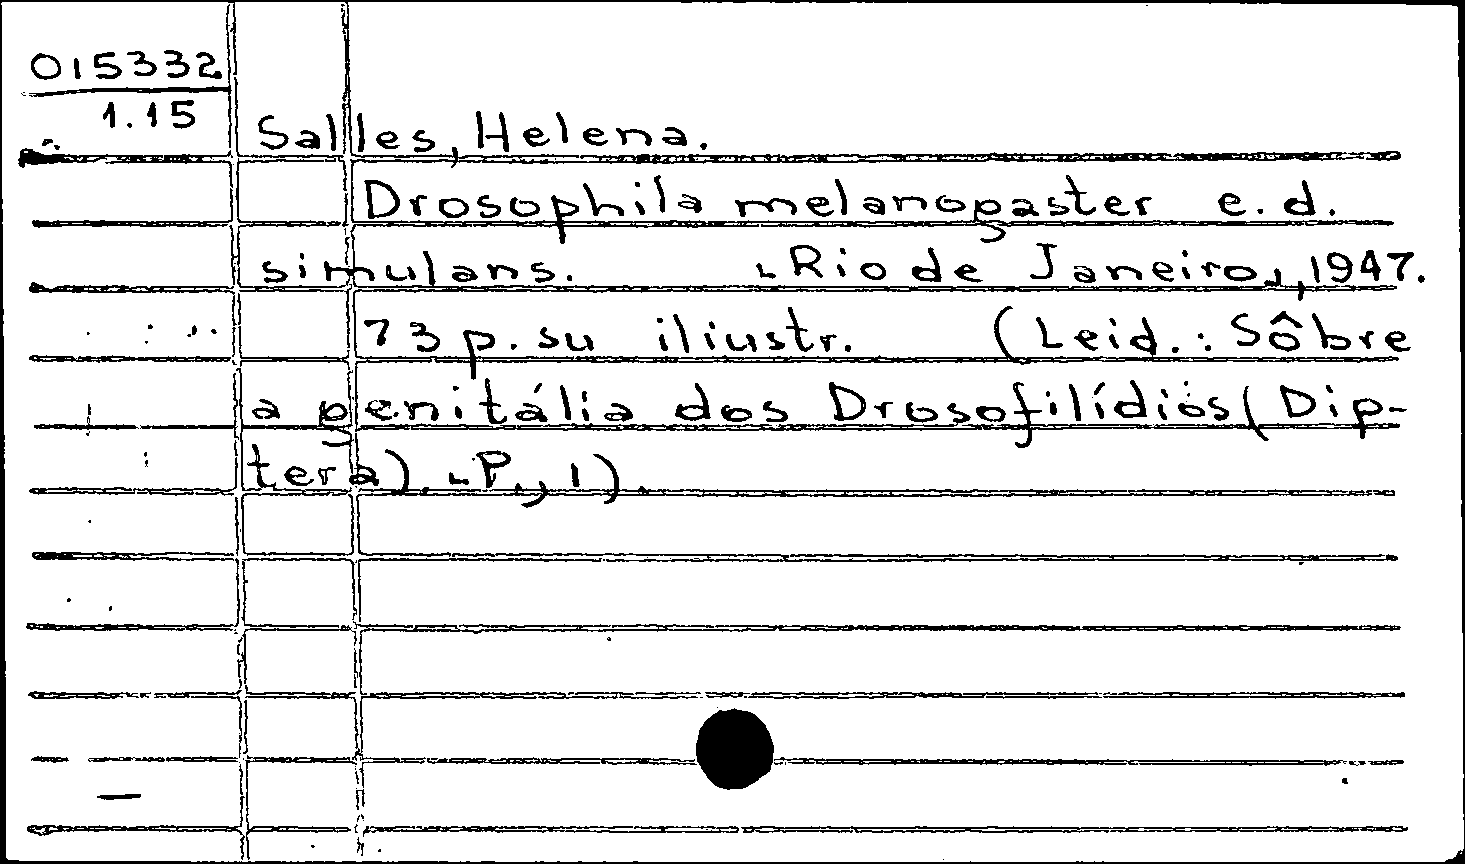 015332
1.15
Salles, Helena.
Drosophila melanogaster e.d.
simulans. ⌞Rio de Janeiro⌟, 1947.
73 p. su iliustr. (Leid.: Sôbre
a genitália dos Drosofilídios (Dip-
tera). ⌞P., 1).